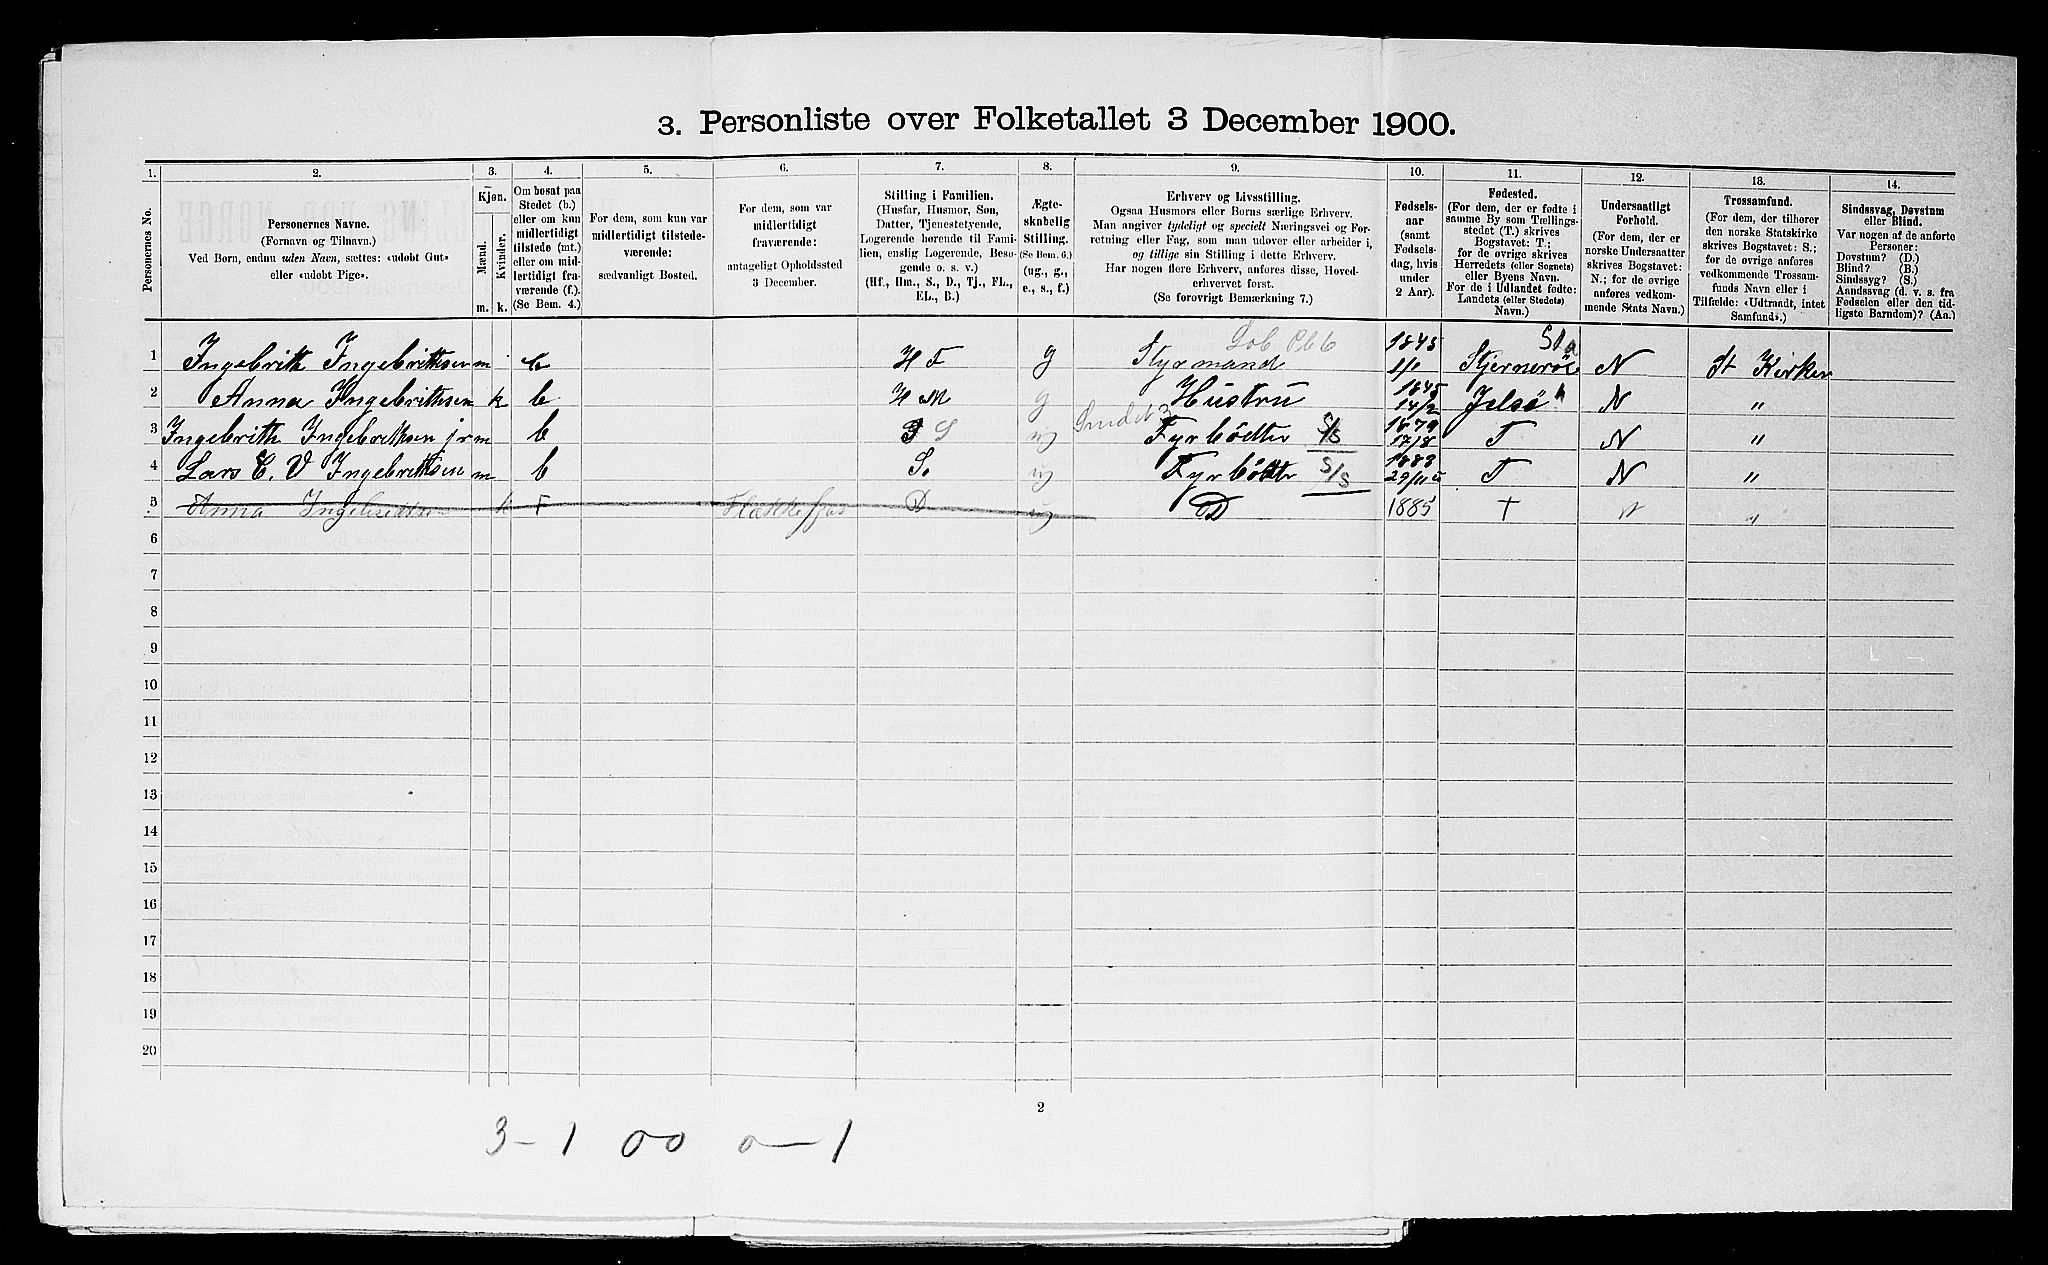 3. Personliste over Folketallet 3 December 1900.
1. 2. 3. 4. 5. 6. 7. 8. 9. 10. 11. 12. 13. 14.
Personernes No.
Personernes Navne.
(Fornavn og Tilnavn.)
Ved Børn, endnu uden Navn, sættes: «udøbt Gut»
eller «udøbt Pige».
Kjøn.
Mænd.
Kvinder.
m. k.
Om bosat paa
Stedet (b.)
eller om kun
midlertidigt
tilstede (mt.)
eller om mid-
lertidigt fra-
værende (f.).
(Se Bem. 4.)
For dem, som kun var
midlertidigt tilstede-
værende:
sædvanligt Bosted.
For dem, som var
midlertidigt
fraværende:
antageligt Opholdssted
3 December.
Stilling i Familien.
(Husfar, Husmor, Søn,
Datter, Tjenestetyende,
Logerende hørende til Fami-
lien, enslig Logerende, Besø-
gende o. s. v.)
(Hf., Hm., S., D., Tj., FL.,
EL., B.)
Ægte-
skabelig
Stilling.
(Se Bem. 6.)
(ug., g.,
e., s., f.)
Erhverv og Livsstilling.
Ogsaa Husmors eller Børns særlige Erhverv.
Man angiver tydeligt og specielt Næringsvei og For-
retning eller Fag, som man udøver eller arbeider i,
og tillige sin Stilling i dette Erhverv.
Har nogen flere Erhverv, anføres disse, Hoved-
erhvervet først.
(Se forøvrigt Bemærkning 7.)
Fødsels-
aar
(samt
Fødsels-
dag, hvis
under
2 Aar).
Fødested.
(For dem, der er fødte i
samme By som Tællings-
stedet (T.) skrives
Bogstavet: T.;
for de øvrige skrives
Herredets (eller Sognets)
eller Byens Navn.
For de i Udlandet fødte:
Landets (eller Stedets)
Navn.)
Undersaatligt
Forhold.
(For dem, der er
norske Undersaatter
skrives Bogstavet:
N.; for de øvrige
anføres vedkom-
mende Stats Navn.)
Trossamfund.
(For dem, der tilhører
den norske Statskirke
skrives Bogstavet: S.;
for de øvrige anføres
vedkommende Trossam-
funds Navn eller i
Tilfælde: «Udtraadt, intet
Samfund».)
Sindssvag, Døvstum
eller Blind.
Var nogen af de anførte
Personer:
Døvstum? (D.)
Blind? (B.)
Sindssyg? (S.)
Aandssvag (d. v. s. fra
Fødselen eller den tid-
ligste Barndom)? (Aa.)
1 Ingebrith Ingebrithsen m b H F g Styrmand 1845 1/1 Stjernerøe N St Kirken
2 Anna Ingebrithsen k b H M g Hustru 1845 14/2 Jelsø N "
3 Ingebrith Ingebrithsen jr m b S ug Fyrbödter S/S 1879 17/8 T N "
4 Lars C. V Ingebrithsen m b S. ug Fyrbödter S/S 1883 29/11 T N "
5 Anna Ingebrithsen k F Flekkefjor D ug D 1885 T N "
6
7
8
9
10
11
12
13
14
15
16
17
18
19
20
2
3-1 00 0-1